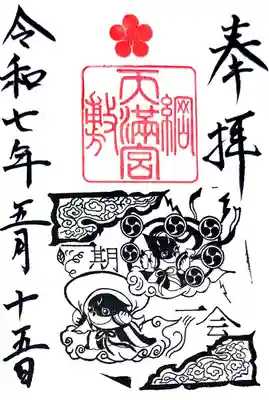 奉拝
綱敷天満宮
一期
一会
令和七年五月十五日